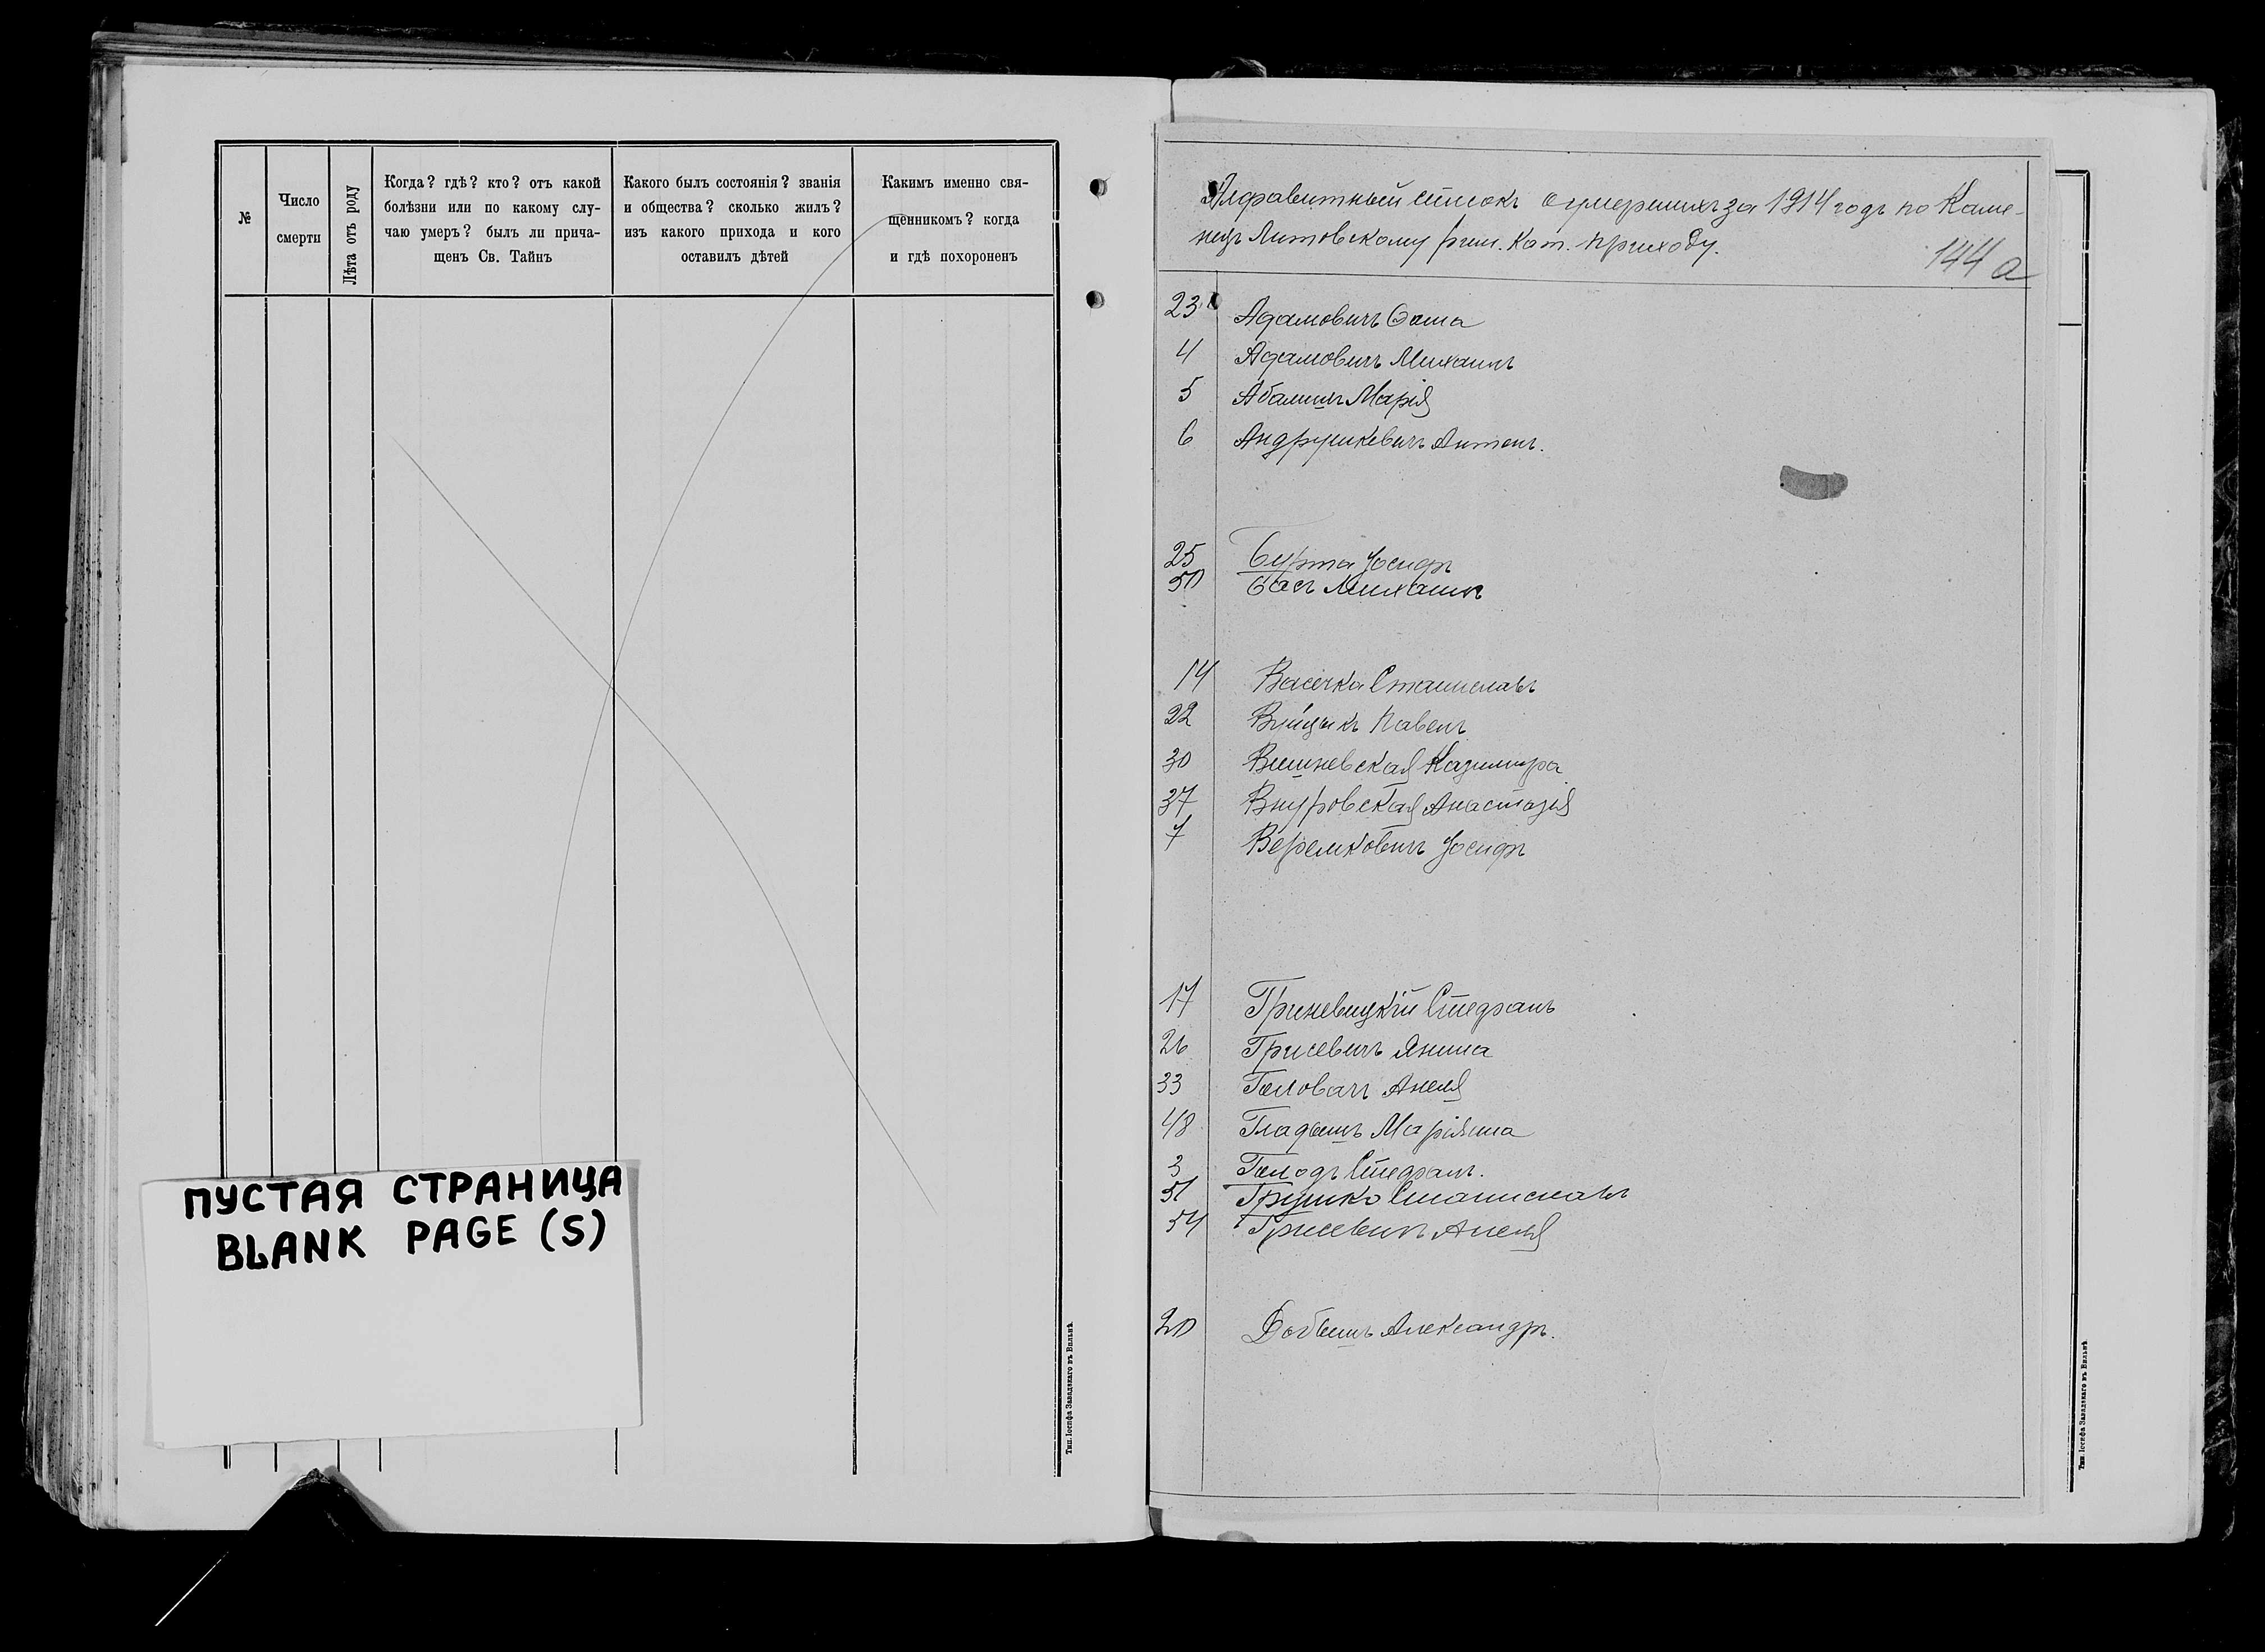 №
Число
смерти
Лѣта отъ роду
Когда? гдѣ? кто? отъ какой
болѣзни или по какому слу-
чаю умеръ? былъ ли прича-
щенъ Св. Тайнъ
Какого былъ состоянія? званія
и общества? сколько жилъ?
изъ какого прихода и кого
оставилъ дѣтей
Какимъ именно свя-
щенникомъ? когда
и гдѣ похороненъ
ПУСТАЯ СТРАНИЦА
BLANK PAGE (S)
Тип. Іосифа Завадзкаго въ Вильнѣ.
Алфавитный списокъ о умершихъ за 1914 годъ по Каме-
нецъ Литовскому рим. кат. приходу.
144 а
23 Адамовичъ
4 Адамовичъ Михаилъ
5 Марія
6 Андрушкевичъ Антонъ.
25 Бурта Іосифъ
50 Басъ Михаилъ
14 Васечка Станиславъ
22 Вуйцикъ Павелъ
30 Вишневская Казимира
37 Внуровская Анастазія
7 Веремковичъ Іосифъ
17 Гриневицкій Стефанъ
26 Грисевичъ Янина
33 Головачъ Анеля
48 Гладышъ Маріянна
3 Голодъ Стефанъ.
51 Грушко Станиславъ
54 Грисевичъ Анеля
20 Добышъ Александръ.
Тип. Іосифа Завадзкаго въ Вильнѣ.